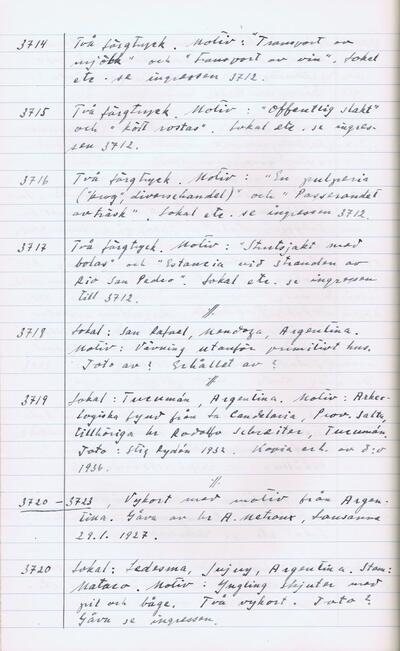 3714 Två färgtryck. Motiv: "Transport av
mjölk" och "Transport av vin". Lokal
etc. se ingressen 3712.
3715 Två färgtryck. Motiv: "Offentlig slakt"
och "Kött rostas". Lokal etc. se ingres-
sen 3712.
3716 Två färgtryck. Motiv: "En pulperia
("krog", diversehandel)" och "Passerandet
av träsk". Lokal etc. se ingressen 3712.
3717 Två färgtryck. Motiv: "Strutsjakt med
bolas" och "Estancia vid stranden av
Rio San Pedro". Lokal etc. se ingressen
till 3712.
//.
3718 Lokal: San Rafael, Mendoza, Argentina.
Motiv: Vävning utanför primitivt hus.
Foto av? Erhållet av?
//
3719 Lokal: Tucumán, Argentina. Motiv: Arkeo-
logiska fynd från La Candelaria, Prov. Salta,
tillhöriga hr Rodolfo Schreiter, Tucumán.
Foto: Stig Rydén 1932. Kopia erh. av d:o
1936.
//.
3720-3723, Vykort med motiv från Argen-
tina. Gåva av hr A. Metraux, Lausanne
29.1.1927.
3720 Lokal: Ledesma, Jujuy, Argentina. Stam:
Mataco. Motiv: Yngling skjuter med
pil och båge. Två vykort. Foto?
Gåva se ingressen.